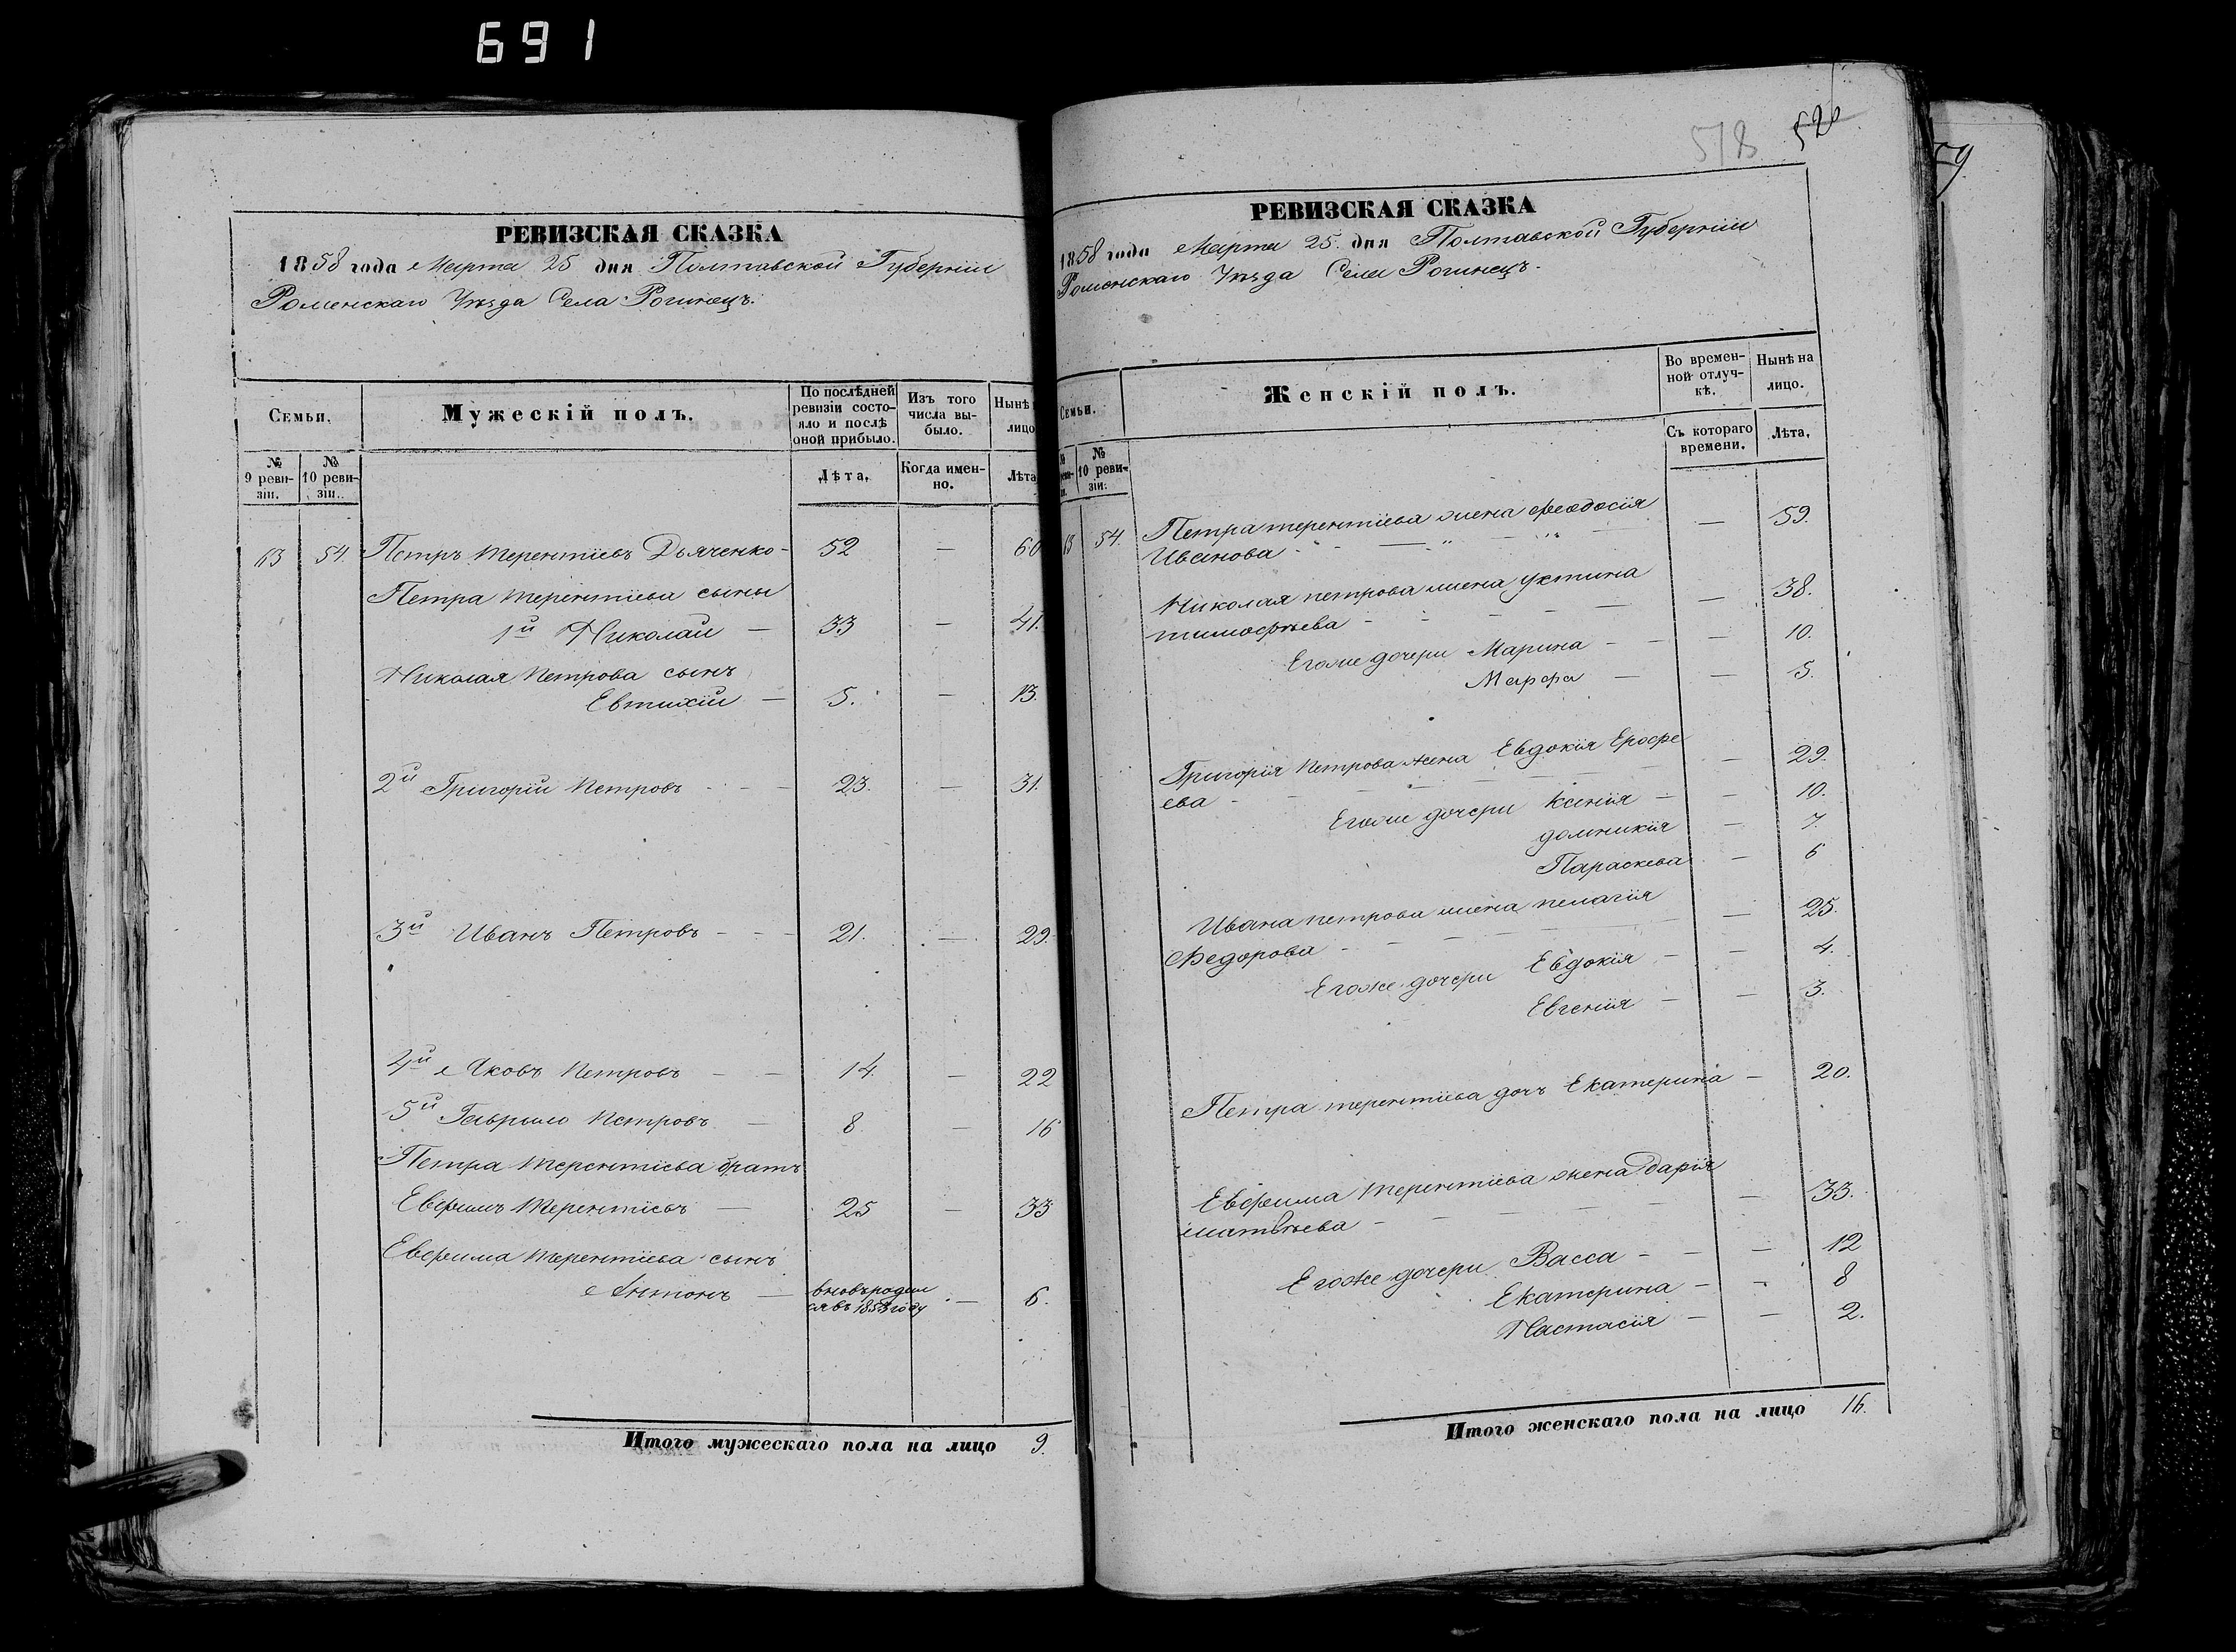 691
РЕВИЗСКАЯ СКАЗКА
1858 года Марта 25 дня Полтавской Губернiи
Роменскаго Уѣзда Села Рогинецъ.
Семьи.
Мужескiй полъ.
По послѣдней ревизiи состояло и послѣ оной прибыло.
Изъ того числа выбыло.
Нынѣ
лицо
№ 9 ревизiи.
№ 10 ревизiи.
Лѣта,
Когда именно.
Лѣта
13 54. Петръ Терентiевъ Дьяченко - 52 — 60
Петра Терентiева сыны
1й Николай — 33 — 41.
Николая Петрова сынъ
Евтихiй — 5. — 13.
2й Григорiй Петровъ - - - 23. — 31.
3й Иванъ Петровъ - - - 21. — 29.
4й Яковъ Петровъ — — 14. — 22
5й Гаврыло Петровъ — 8. — 16
Петра Терентiева братъ
Евфимъ Терентiевъ — 25 — 33
Евфима Терентiева сынъ
Антонъ — вновьродил
ся въ 1853 году — 6.
Итого мужескаго пола на лицо 9.
518 520
РЕВИЗСКАЯ СКАЗКА
1858 года Марта 25. дня Полтавской Губернiи
Роменскаго Уѣзда Села Рогинецъ.
Семьи.
Женскiй полъ.
Во временной отлучкѣ.
Нынѣ на лицо.
№ 10 ревизiи.
Съ котораго времени.
Лѣта,
13 54. Петра терентiева жена Феодосiя
Иванова — 59.
Николая петрова жена Устина
тимофѣева - — 38.
Егоже дочери Марина — — 10.
Марфа — — 5.
Григорiя Петрова жена Евдокiя Ерофе
ева - — 29.
Егоже дочери Ксенiя — — 10.
домникiя — 7.
Параскева — 6
Ивана петрова жена пелагiя
Федорова - — 25.
Егоже дочери Евдокiя — — 4.
Евгенiя — — 3.
Петра терентiева дочь Екатерина — 20.
Евфима Терентiева жена Дарiя
матвѣева - — 33.
Егоже дочери Васса - — 12
Екатерина - - 8
Настасiя — — 2.
Итого женскаго пола на лицо 16.
59